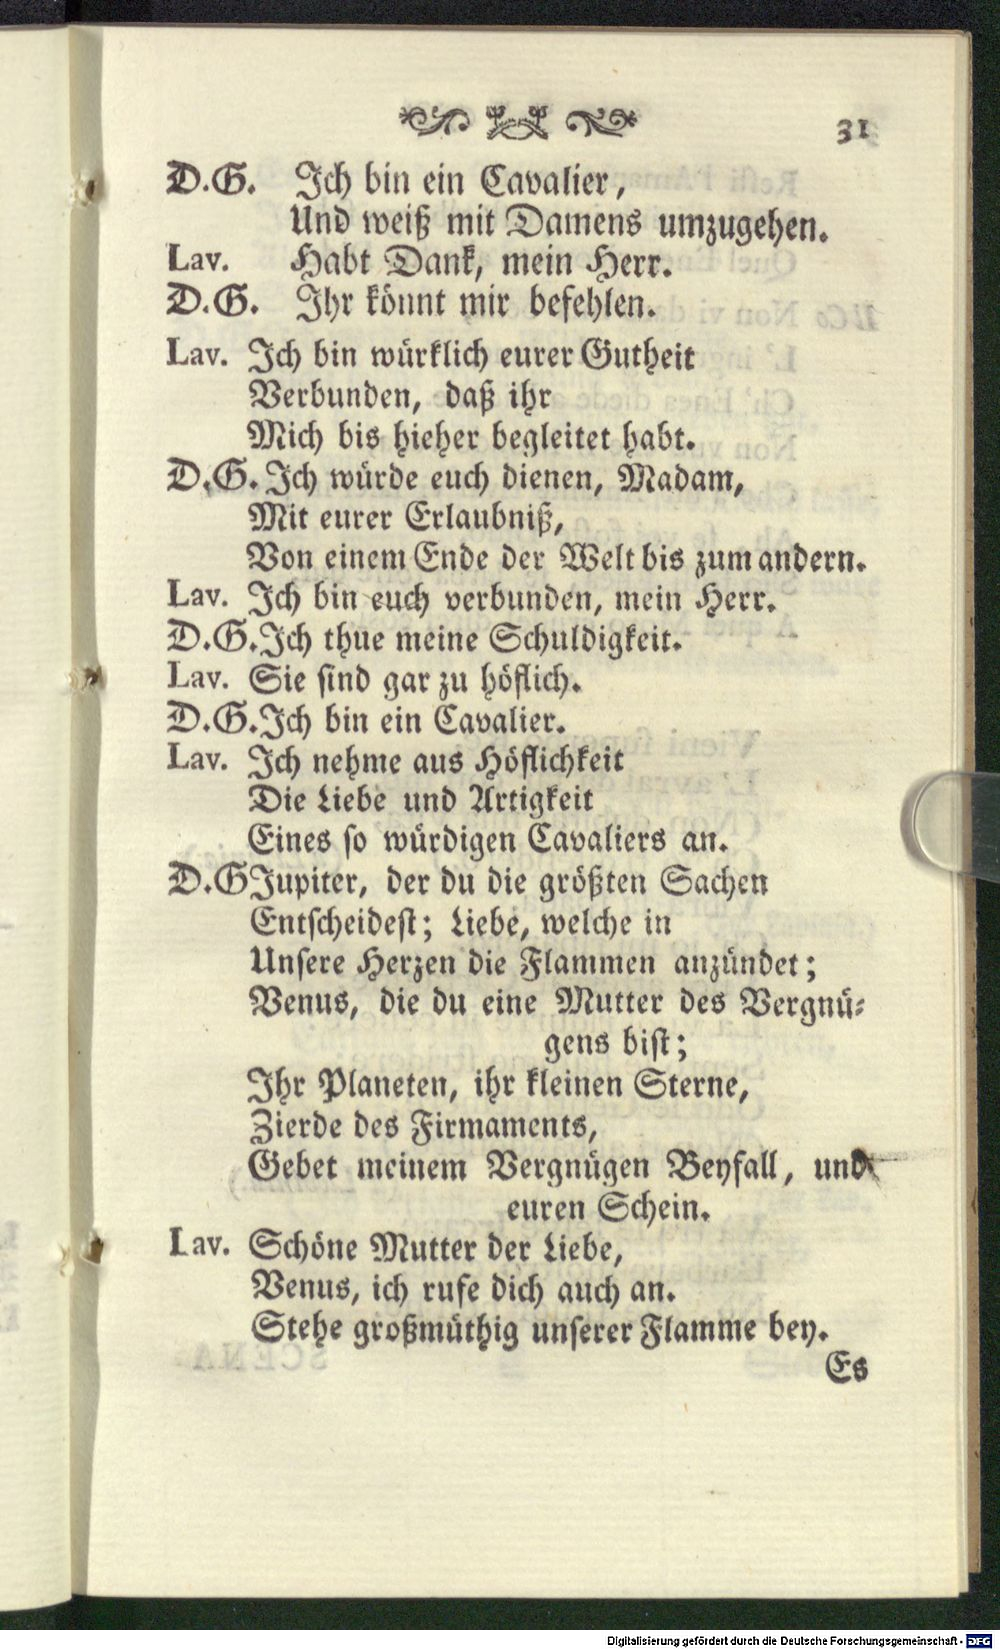 31
D.G. Ich bin ein Cavalier,
Und weiß mit Damens umzugehen.
Lav. Habt Dank, mein Herr.
D.G. Ihr könnt mir befehlen.
Lav. Ich bin würklich eurer Gutheit
Verbunden, daß ihr
Mich bis hieher begleitet habt.
D.G. Ich würde euch dienen, Madam,
Mit eurer Erlaubniß,
Von einem Ende der Welt bis zum andern.
Lav. Ich bin euch verbunden, mein Herr.
D.G. Ich thue meine Schuldigkeit.
Lav. Sie sind gar zu höflich.
D.G. Ich bin ein Cavalier.
Lav. Ich nehme aus Höflichkeit
Die Liebe und Artigkeit
Eines so würdigen Cavaliers an.
D.G Jupiter, der du die größten Sachen
Entscheidest; Liebe, welche in
Unsere Herzen die Flammen anzündet;
Venus, die du eine Mutter des Vergnü-
gens bist;
Ihr Planeten, ihr kleinen Sterne,
Zierde des Firmaments,
Gebet meinem Vergnügen Beyfall, und
euren Schein.
Lav. Schöne Mutter der Liebe,
Venus, ich rufe dich auch an.
Stehe großmüthig unserer Flamme bey.
Es
Digitalisierung gefördert durch die Deutsche Forschungsgemeinschaft - DFG